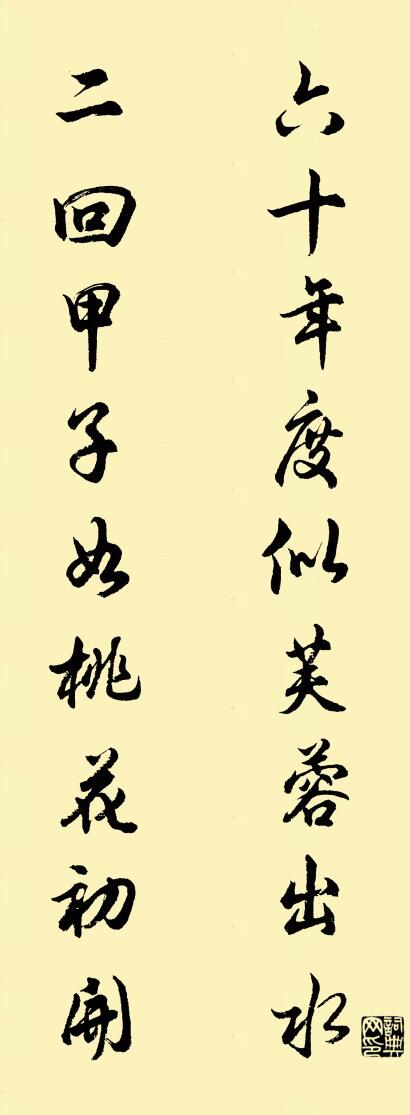 六十年度似芙蓉出水
二回甲子如桃花初開
詞典網印